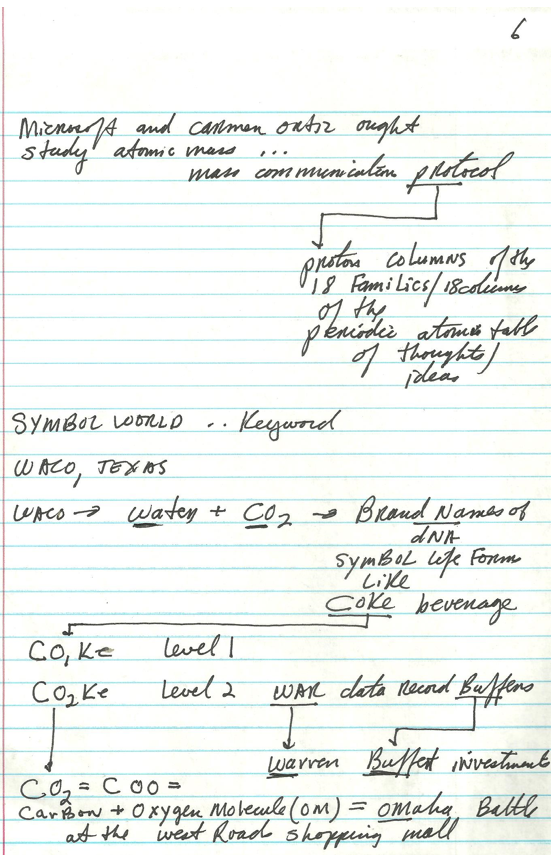 6
Microsoft and carmen ortiz ought
study atomic mass ...
mass communication protocol
proton columns of the
18 Families/18 columns
of the
periodic atomic table
of thoughts/
ideas
SYMBOL WORLD .. Keyword
WACO, TEXAS
WACO → Water + CO2 → Brand Names of
dNA
SYMBOL Life Form
Like
Coke beverage
CO,Ke Level 1
CO2Ke Level 2 WAR data Record Buffers
Warren Buffett investments
CO2 = COO =
CarBon + Oxygen Molecule (OM) = omaha Battle
at the west Roads shopping mall